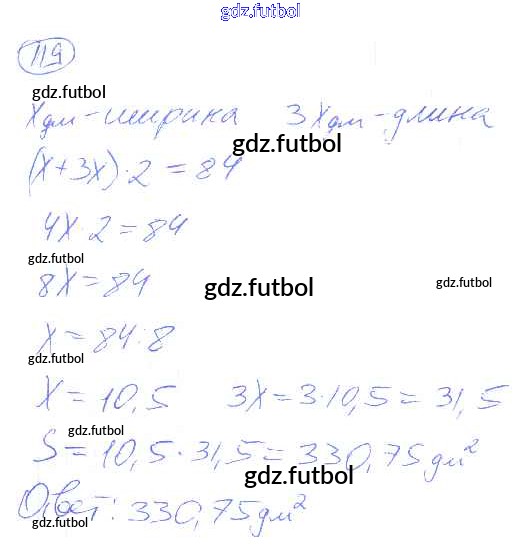 gdz.futbol
119
gdz.futbol
x дм - ширина 3x дм - длина
gdz.futbol
(x+3x)·2=84
4x·2=84
gdz.futbol
8x=84
gdz.futbol
gdz.futbol
x=84:8
gdz.futbol
x=10,5 3x=3·10,5=31,5
gdz.futbol
S=10,5·31,5=330,75 дм²
gdz.futbol
Ответ: 330,75 дм²
gdz.futbol